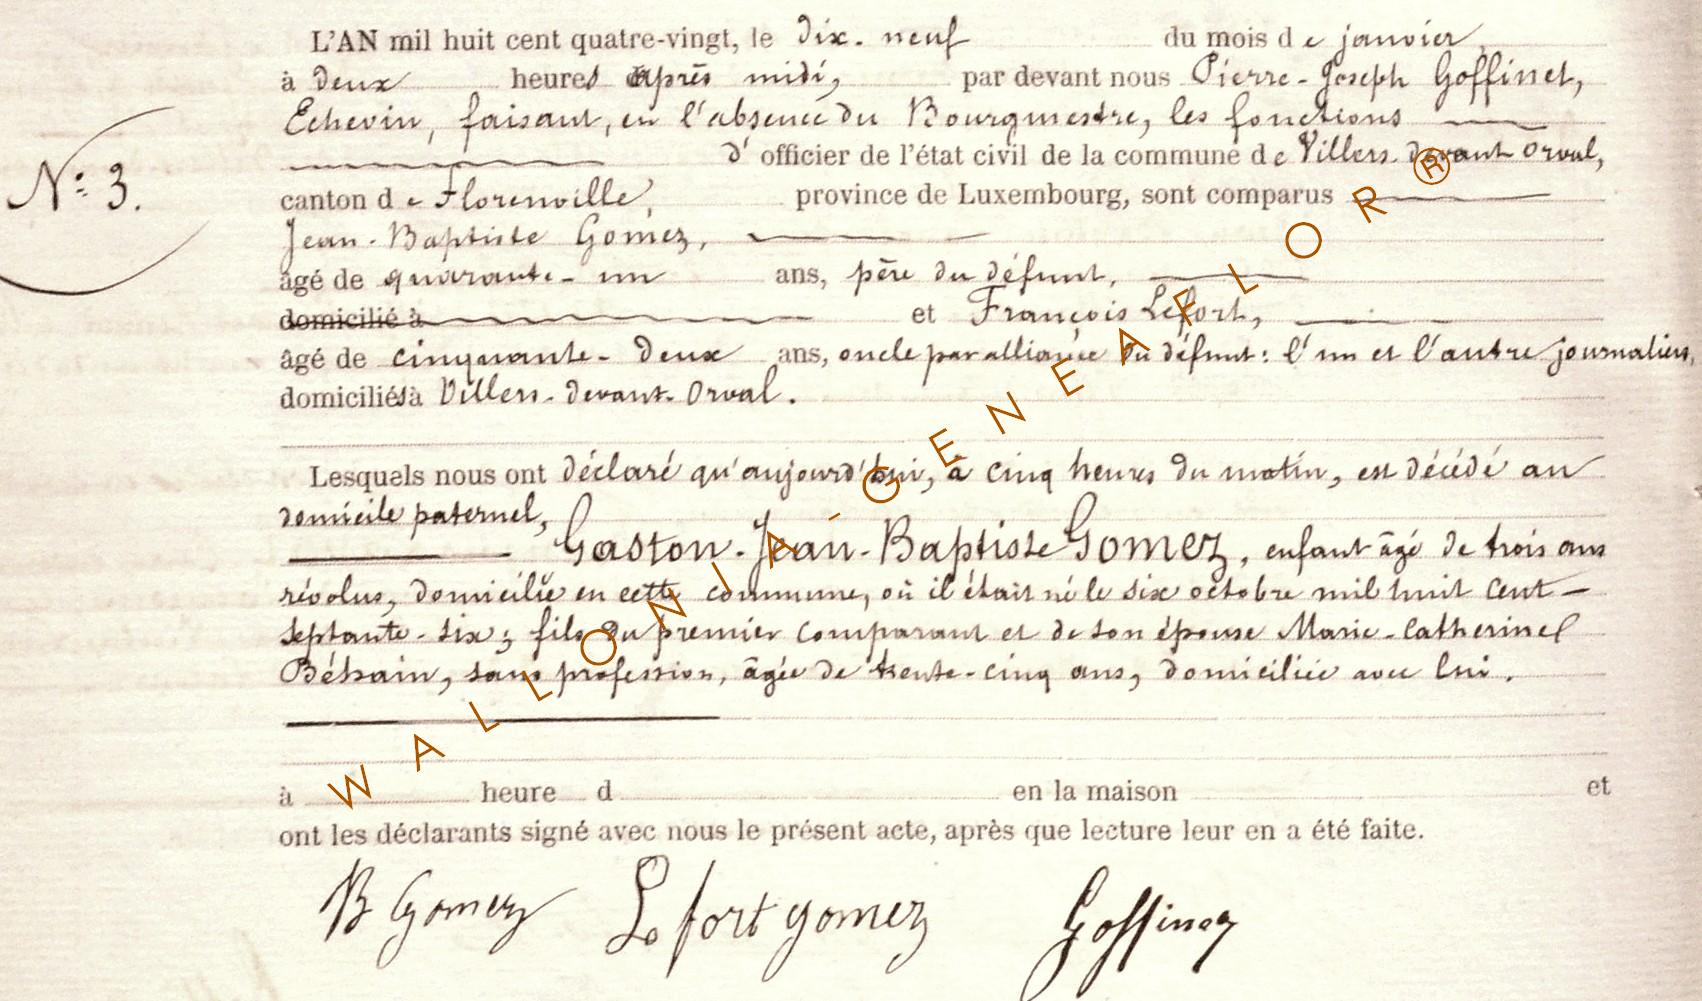 L'AN mil huit cent quatre-vingt, le dix-neuf du mois de janvier,
à deux heures après midi, par devant nous Pierre-Joseph Goffinet,
Echevin, faisant, en l'absence du Bourgmestre, les fonctions
d'officier de l'état civil de la commune de Villers devant Orval,
N° 3.
canton de Florenville, province de Luxembourg, sont comparus
Jean-Baptiste Gomez,
âgé de quarante-un ans, père du défunt,
domicilié à et François Lefort,
âgé de cinquante-deux ans, oncle par alliance du défunt: l'un et l'autre journaliers,
domiciliés à Villers-devant-Orval.
Lesquels nous ont déclaré qu'aujourd'hui, à cinq heures du matin, est décédé au
domicile paternel,
Gaston-Jean-Baptiste Gomez, enfant âgé de trois ans
révolus, domicilié en cette commune, où il était né le six octobre mil huit cent
septante-six; fils du premier comparant et de son épouse Marie-Catherine
Béhain, sans profession, âgée de trente-cinq ans, domiciliée avec lui.
à heure d en la maison et
ont les déclarants signé avec nous le présent acte, après que lecture leur en a été faite.
B Gomez Lefort gomez Goffinet
WALLONIA-GENEAFLOR®